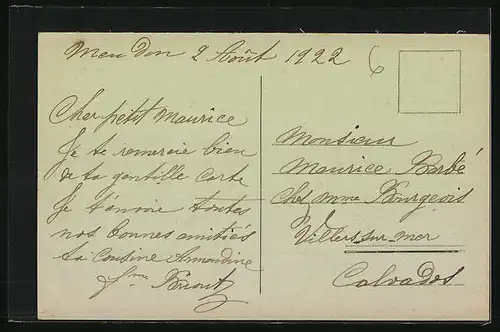 Meudon 2 Août 1922
6
Cher petit Maurice
Je te remercie bien
de ta gentille carte
Je t'envoie toutes
nos bonnes amitiés
ta Cousine Armandine
Monsieur
Maurice Barbé
chez mme Bourgeois
Villers sur mer
Calvados